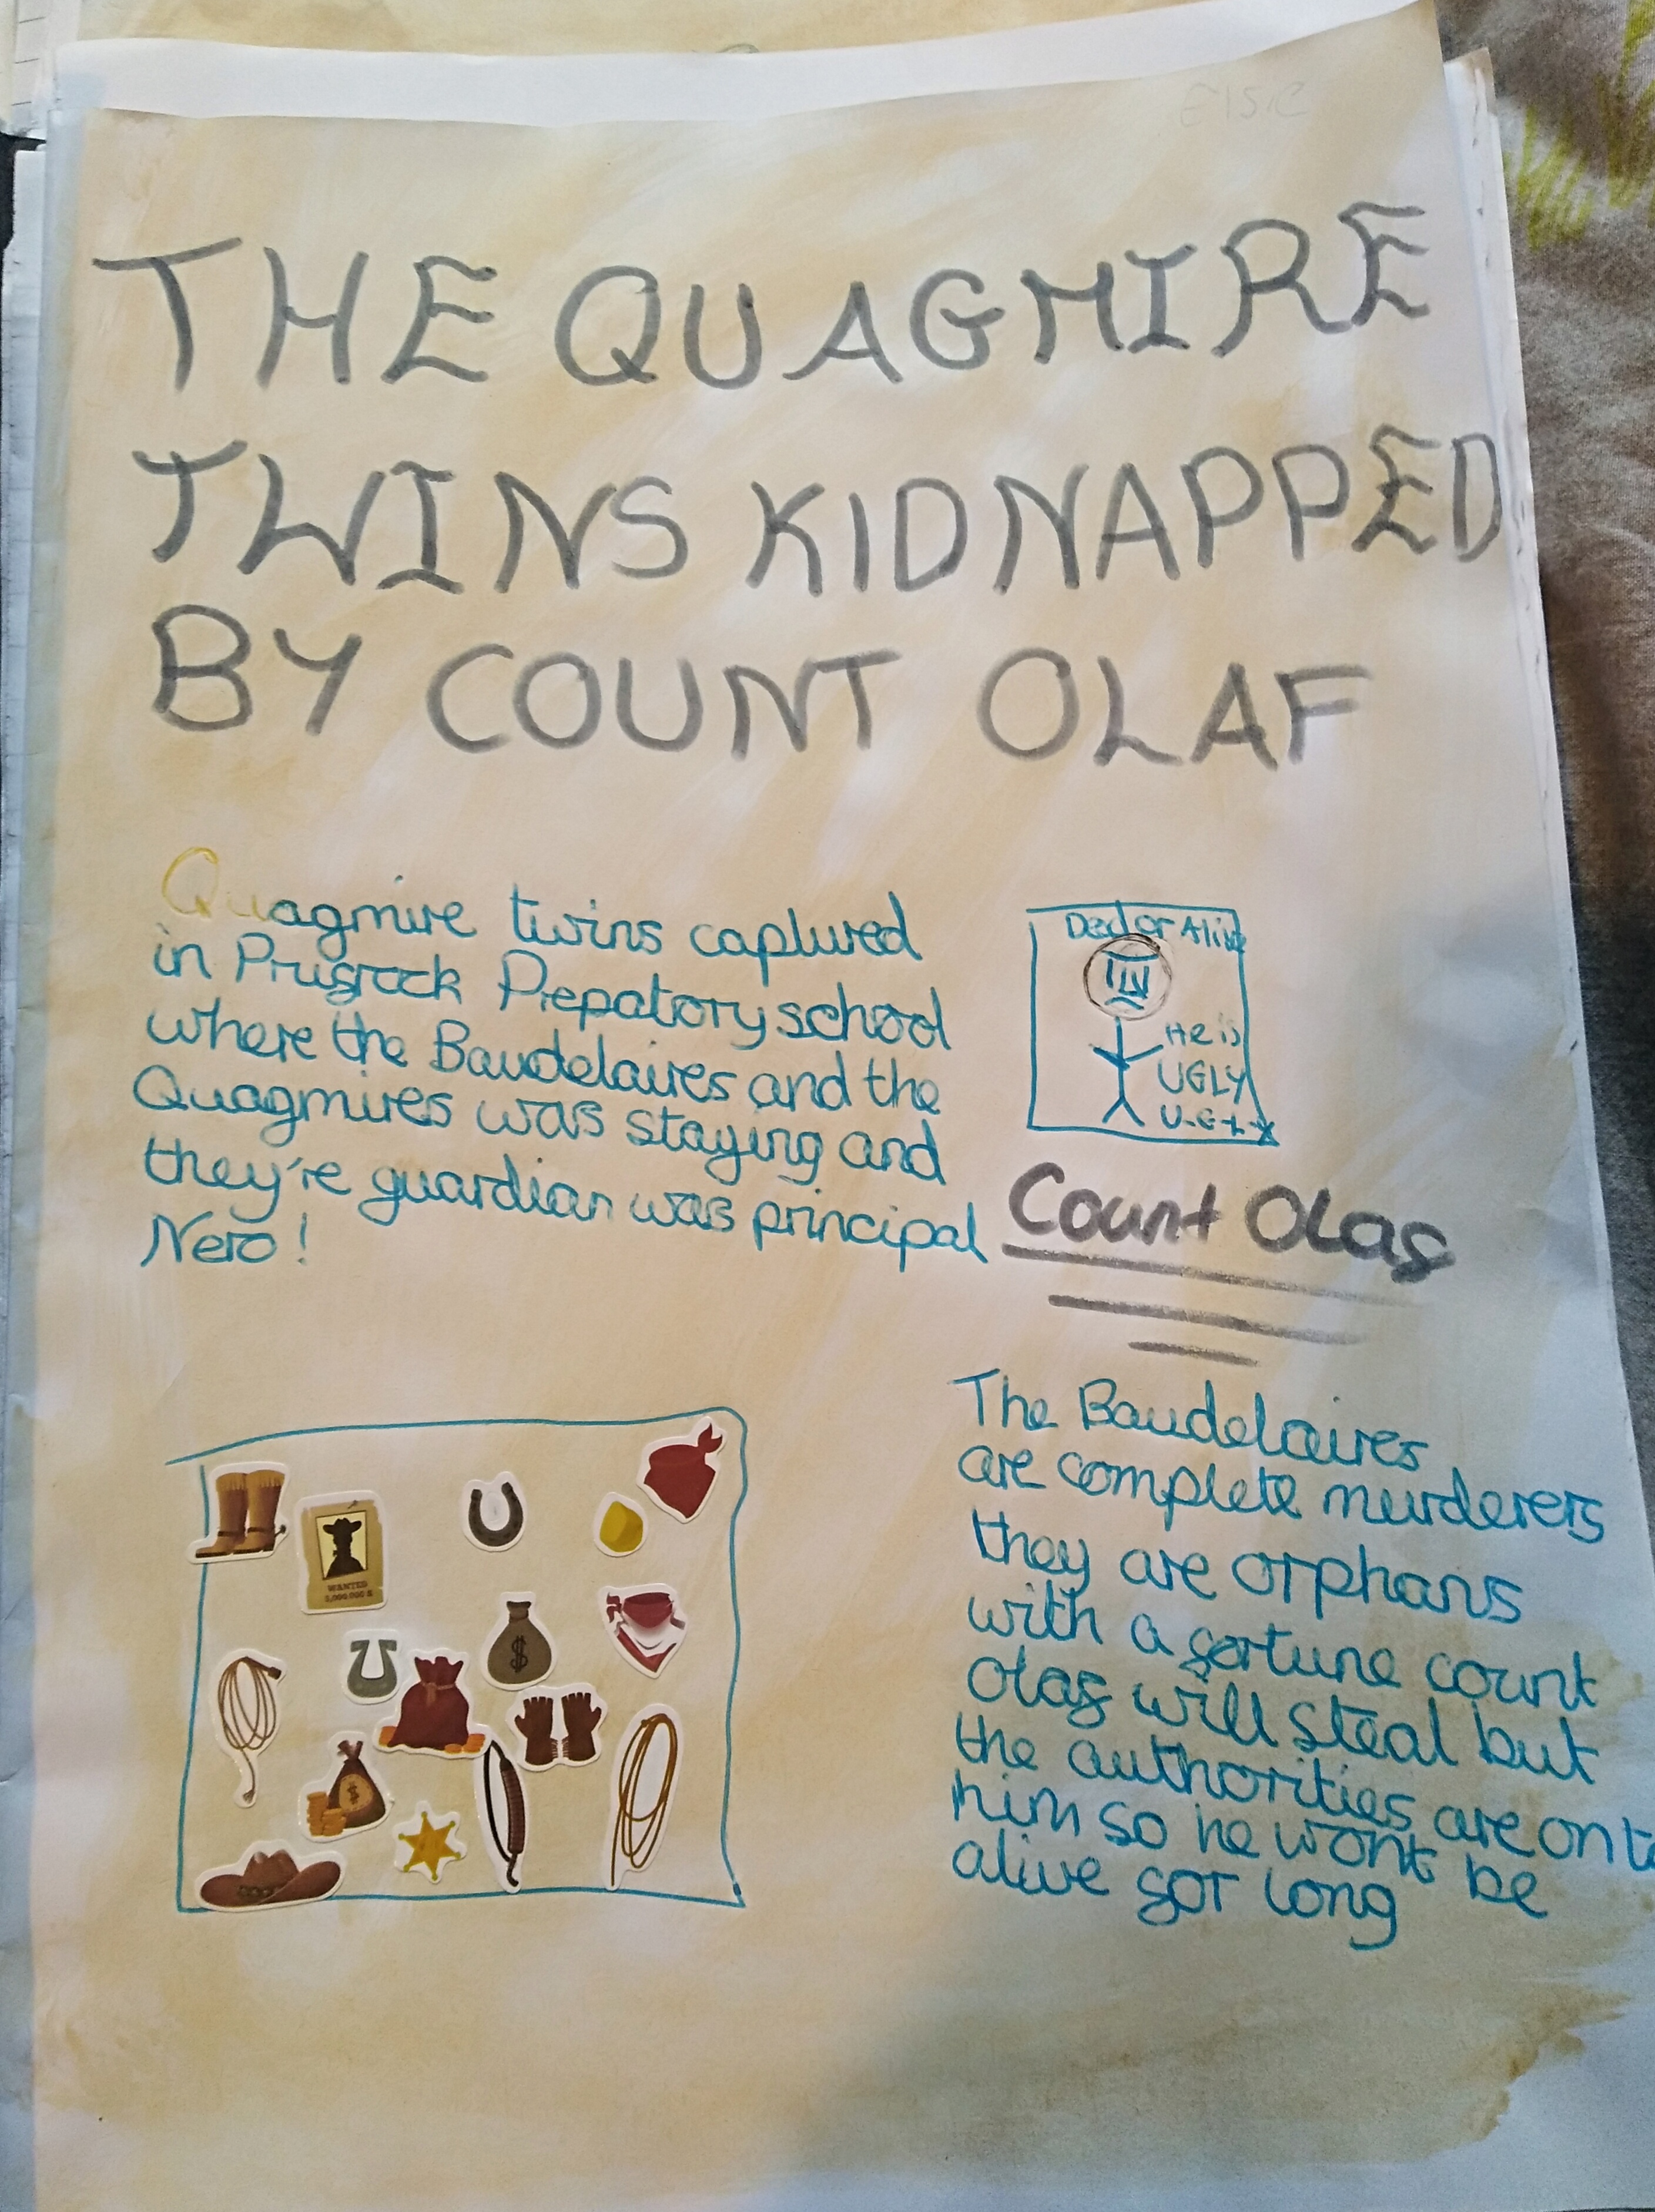 Elsie
THE QUAGMIRE
TWINS KIDNAPPED
BY COUNT OLAF
Quagmire twins captured
in Prusrock Prepatory school
where the Baudelaires and the
Quagmires was staying and
they're guardian was principal
Nero!
Ded or Alive
He is
UGLY
U-G-L-Y
Count Olaf
The Baudelaires
are complete murderers
they are orphans
with a fortune count
Olaf will steal but
the authorities are onto
him so he wont be
alive for long
WANTED
$
$